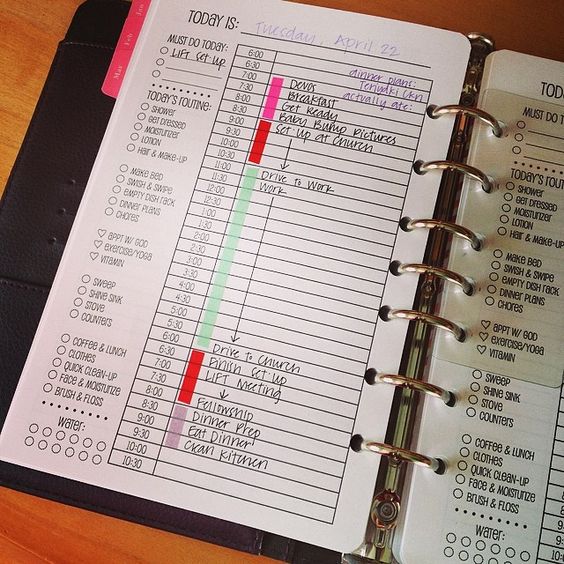 TODAY IS: Tuesday, April 22
MUST DO TODAY:
LIFT Set up
TODAY'S ROUTINE:
SHOWER
GET DRESSED
MOISTURIZER
LOTION
HAIR & MAKE-UP
MAKE BED
SWISH & SWIPE
EMPTY DISH RACK
DINNER PLANS
CHORES
APPT W/ GOD
EXERCISE/YOGA
VITAMIN
SWEEP
SHINE SINK
STOVE
COUNTERS
COFFEE & LUNCH
CLOTHES
QUICK CLEAN-UP
FACE & MOISTURIZE
BRUSH & FLOSS
WATER:
dinner plans:
Teriyaki ckn
actually ate:
6:00
6:30
7:00
7:30 Devos
8:00 Breakfast
8:30 Get Ready
9:00 Baby Bump Pictures
9:30 Set Up at Church
10:00
10:30
11:00
11:30 Drive to Work
12:00 Work
12:30
1:00
1:30
2:00
2:30
3:00
3:30
4:00
4:30
5:00
5:30
6:00 Drive to Church
6:30 Finish Set Up
7:00 LIFT Meeting
7:30
8:00 Fellowship
8:30 Dinner Prep
9:00 Eat Dinner!
9:30 Clean Kitchen
10:00
10:30
Jan
Feb
Mar
TODA
MUST DO TODAY:
TODAY'S ROUTINE:
SHOWER
GET DRESSED
MOISTURIZER
LOTION
HAIR & MAKE-UP
MAKE BED
SWISH & SWIPE
EMPTY DISH RACK
DINNER PLANS
CHORES
APPT W/ GOD
EXERCISE/YOGA
VITAMIN
SWEEP
SHINE SINK
STOVE
COUNTERS
COFFEE & LUNCH
CLOTHES
QUICK CLEAN-UP
FACE & MOISTURIZE
BRUSH & FLOSS
WATER: